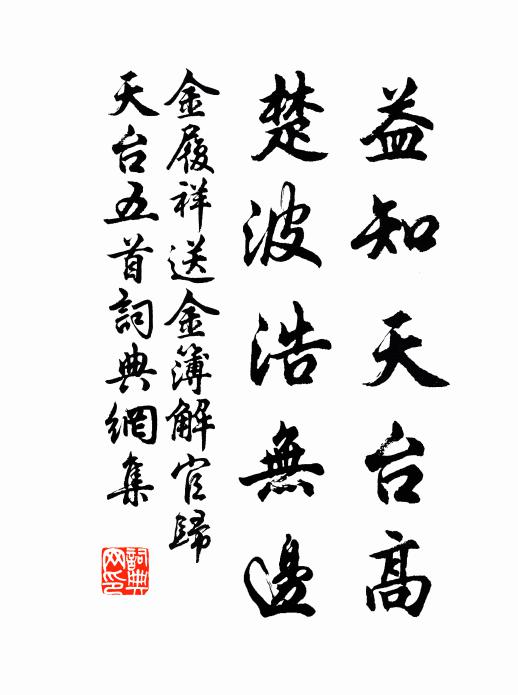 益知天台高
楚波浩無邊
金履祥送金簿解官歸
天台五首詞典網集
詞典
网印